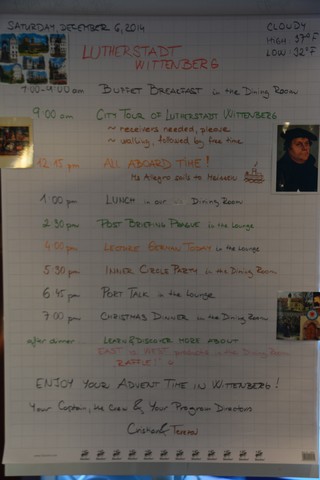 SATURDAY, DECEMBER 6, 2014
CLOUDY
HIGH: 37°F
LOW: 32°F
LUTHERSTADT
WITTENBERG
7:00-9:00 am BUFFET BREAKFAST in the DINING ROOM
9:00 am CITY TOUR OF LUTHERSTADT WITTENBERG
~ receivers needed, please
~ walking, followed by free time
12:15 pm ALL ABOARD TIME!
MS Allegro sails to
1:00 pm LUNCH in our Dining Room
2:30 pm POST BRIEFING PRAGUE in the Lounge
4:00 pm LECTURE GERMAN TODAY in the Lounge
5:30 pm INNER CIRCLE PARTY in the Dining Room
6:45 pm PORT TALK in the Lounge
7:00 pm CHRISTMAS DINNER in the Dining Room
after dinner LEARN & DISCOVER MORE ABOUT
EAST & WEST in the Dining Room
ENJOY YOUR ADVENT TIME IN WITTENBERG!
Your Captain, the Crew & Your Program Directors